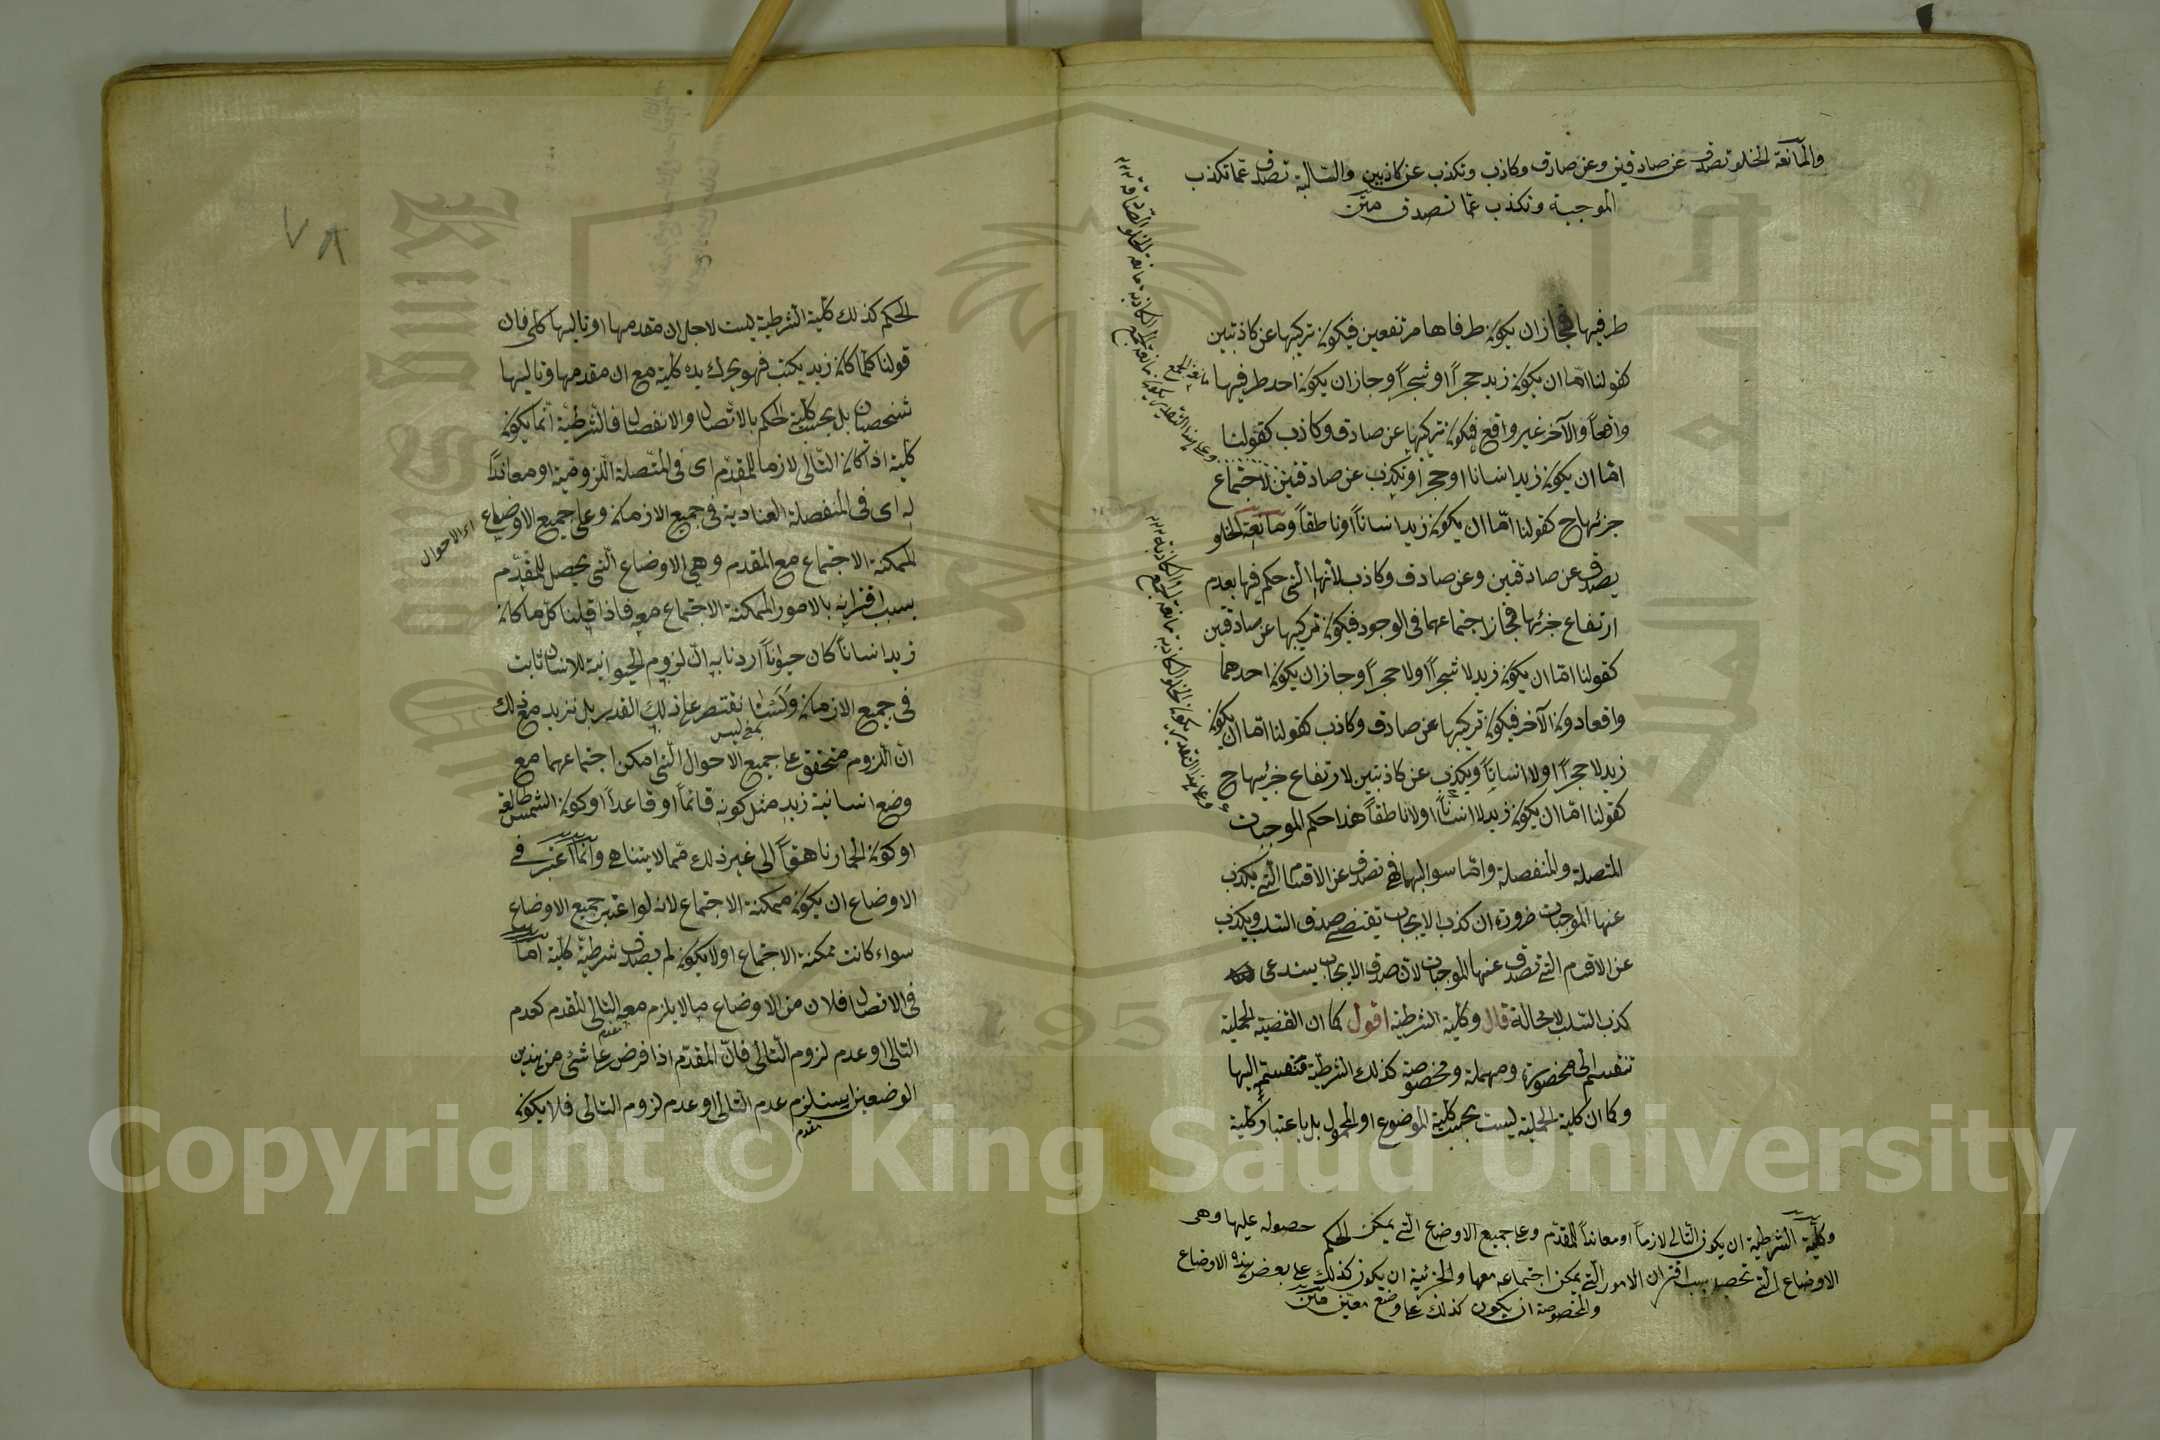 والمانعة الخلو تصدق عن صادقين وعن صادق وكاذب وتكذب عن كاذبين والسالبة تصدق عما تكذب
الموجبة وتكذب عما تصدق متن
طرفيها فجاز ان يكون طرفاها مرتفعين فيكون تركيبها عن كاذبين
كقولنا اما ان يكون زيد حجراً او شجراً وجاز ان يكون احد طرفيها
واقعاً والآخر غير واقع فيكون تركيبها عن صادق وكاذب كقولنا
اما ان يكون زيد انسانا او حجرا وتكذب عن صادقين لاجتماع
جزئيها ح كقولنا اما ان يكون زيد انساناً او ناطقاً ومانعة الخلو
يصدق عن صادقين وعن صادق وكاذب لانها التي حكم فيها بعدم
ارتفاع جزئيها فجاز اجتماعهما فى الوجود فيكون تركيبها عن صادقين
كقولنا اما ان يكون زيد لا شجراً او لا حجراً وجاز ان يكون احدهما
واقعا دون الآخر فيكون تركيبها عن صادق وكاذب كقولنا اما ان يكون
زيد لا حجراً او لا انساناً ويكذب عن كاذبين لارتفاع جزئيها ح
كقولنا اما ان يكون زيد لا انساناً او لا ناطقاً هذا حكم الموجبات
المتصلة والمنفصلة واما سوالبها فهي تصدق عن الاقسام التي يكذب
عنها الموجبات ضرورة ان كذب الايجاب يقتضي صدق السلب ويكذب
عن الاقسام التي تصدق عنها الموجبات لان صدق الايجاب يستدعى
كذب السلب لا محالة قال وكلية الشرطية اقول كما ان القضية الحملية
تنقسم الى محصورة ومهملة ومخصوصة كذلك الشرطية منقسم اليها
وكما ان كلية الحملية ليست بحسب كلية الموضوع او المحمول بل باعتبار كلية
وكلية الشرطية ان يكون التالى لازماً او معانداً للمقدم وعلى جميع الاوضاع التي يمكن الحكم حصوله عليها وهى
الاوضاع التي تحصل بسبب اقتران الامور التي يمكن اجتماعه معها والجزئية ان يكون كذلك على بعض هذه الاوضاع
والمخصوصة ان يكون كذلك على وضع معين متن
٧٨
الحكم كذلك كلية الشرطية ليست لاجل ان مقدمها او تاليها كلى فان
قولنا كلما كان زيد يكتب فهو يحرك يده كلية مع ان مقدمها وتاليها
شخصيان بل بحسب كلية الحكم بالاتصال والانفصال فالشرطية انما يكون
كلية اذا كان التالى لازما للمقدم اى فى المتصلة اللزومية او معانداً
له اى فى المنفصلة العنادية فى جميع الازمان وعلى جميع الاوضاع
اى الاحوال
الممكنة الاجتماع مع المقدم وهى الاوضاع التي يحصل للمقدم
بسبب اقترانه بالامور الممكنة الاجتماع معه فاذا قلنا كل ما كان
زيد انساناً كان حيواناً اردنا به ان لزوم الحيوانية للانسان ثابت
فى جميع الازمان ولسنا نقتصر على ذلك القدر بل نزيد مع ذلك
ان اللزوم متحقق على جميع الاحوال التي امكن اجتماعهما مع
وضع انسانية زيد مثل كونه قائماً او قاعداً او كون الشمس طالعة
او كون الحمار ناهقاً الى غير ذلك مما لا يتناهى وانما اعتبر في
الاوضاع ان يكون ممكنة الاجتماع لانه لو اعتبر جميع الاوضاع
سواء كانت ممكنة الاجتماع او لا يكون لم يصدق شرطية كلية اما
فى الاتصال فلان من الاوضاع ما لا يلزم معه التالى للمقدم كعدم
التالى او عدم لزوم التالى فان المقدم اذا فرض على شئ من هذين
الوضعين استلزم عدم التالى او عدم لزوم التالى فلا يكون
مقدم
Copyright © King Saud University
1957